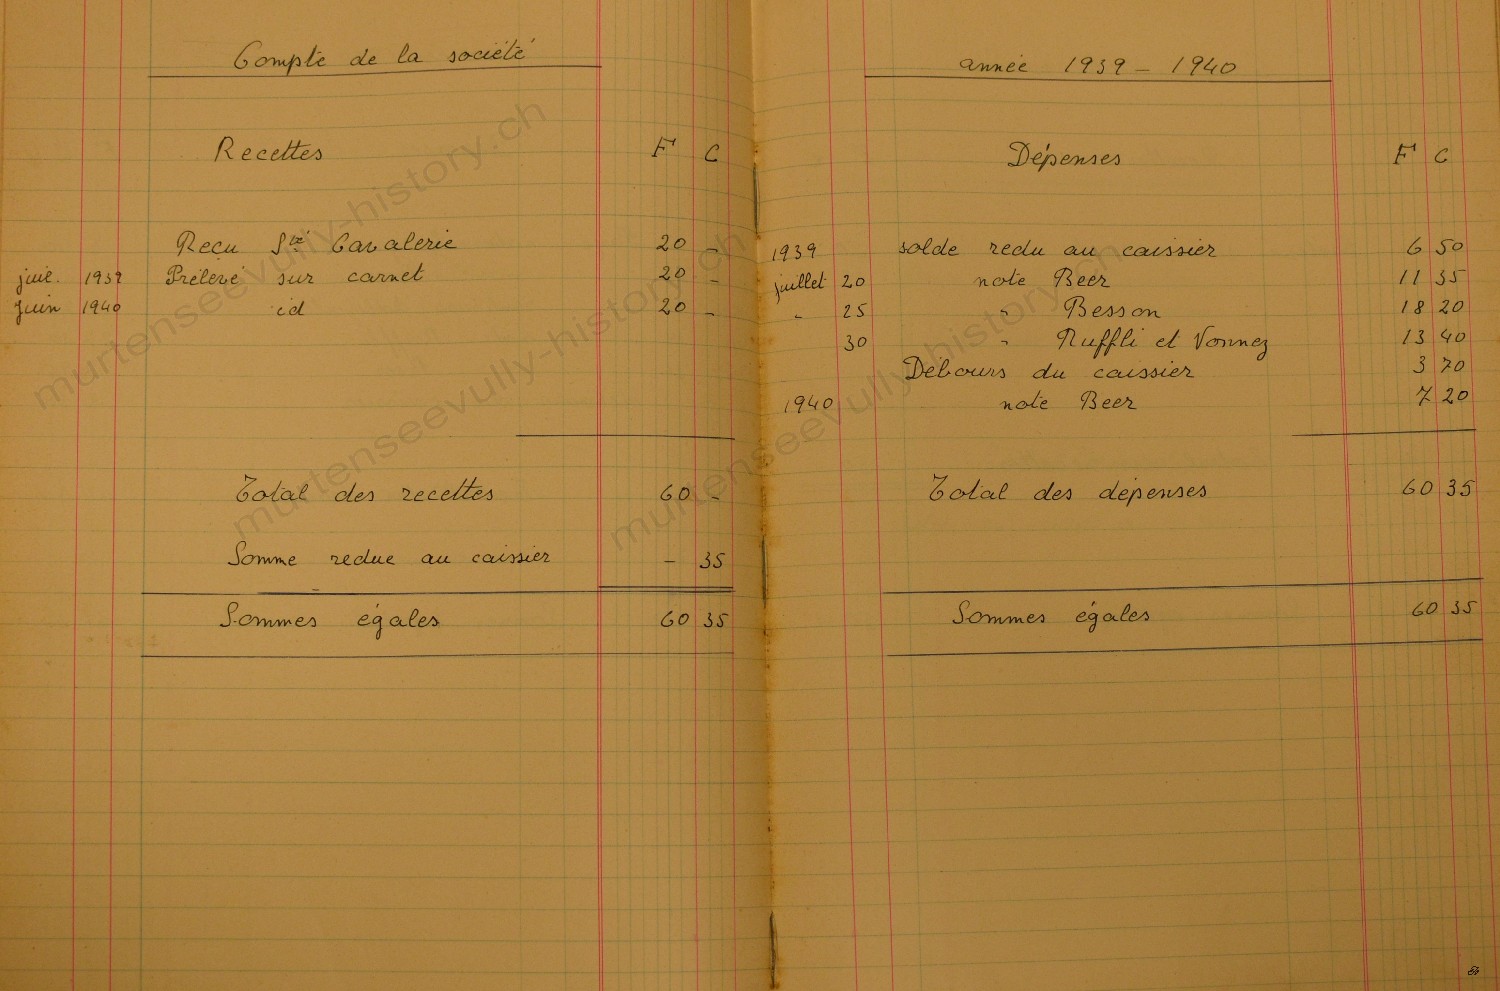 Compte de la société
Recettes F C
Reçu Sté Cavalerie 20 -
juil. 1939 Prélevé sur carnet 20 -
Juin 1940 id 20 -
Total des recettes 60 -
Somme redue au caissier - 35
Sommes égales 60 35
année 1939 - 1940
Dépenses F C
1939 solde redu au caissier 6 50
juillet 20 note Beer 11 35
" 25 " Besson 18 20
30 " Ruffli et Vonnez 13 40
Débours du caissier 3 70
1940 note Beer 7 20
Total des dépenses 60 35
Sommes égales 60 35
murtenseevully-history.ch
murtenseevully-history.ch
murtenseevully-history.ch